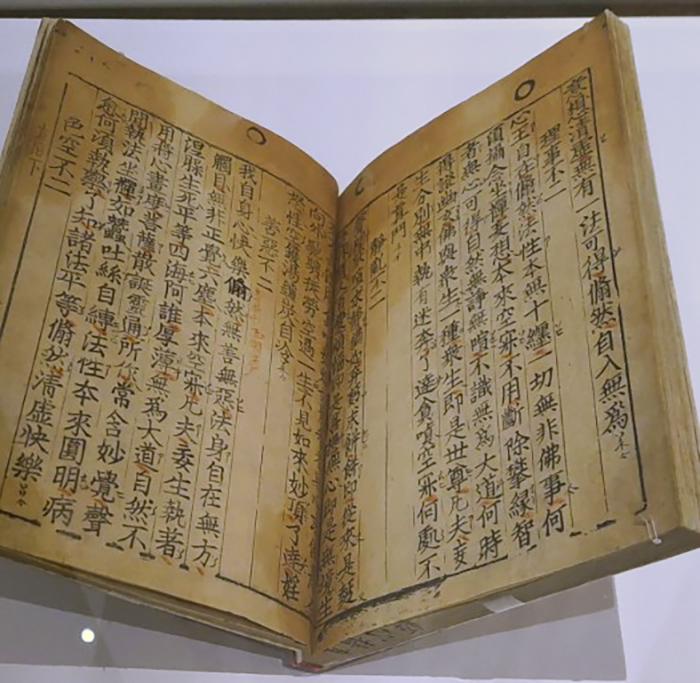 意想清虛無有一法可得翛然自入無為
理事不二
心王自在翛然法性本無十纏一切無非佛事何
須攝念坐禪妄想本來空寂不用斷除攀緣智
者無心可得自然無諍無喧不識無為大道何時
得證幽玄佛與衆生一種衆生即是世尊凡夫妄
生分別無中執有迷奔了達貪嗔空寂何處不
是眞門
靜亂不二
求靜求餅餅即從來是麵
即是無心即是無
向外馳騁徒勞空過一生不見如來妙頂了達婬
慾性空鑊湯爐炭自冷
善惡不二
我自身心快樂翛然無善無惡法身自在無方
觸目無非正覺六塵本來空寂凡夫妄生執著
涅槃生死平等四海阿誰厚薄無為大道自然不
用將心畫度菩薩散誕靈通所作常含妙覺聲
聞執法坐禪如蠶吐絲自縛法性本來圓明病
愈何須執藥了知諸法平等翛然清虛快樂
色空不二